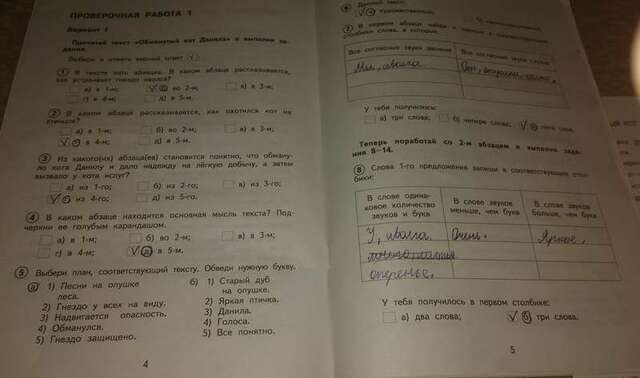 ПРОВЕРОЧНАЯ РАБОТА 1
Вариант 1
Прочитай текст «Обманутый кот Данила» и выполни за-
дания.
Выбери и отметь верный ответ
1 В тексте пять абзацев. В каком абзаце рассказывается,
как устраивает гнездо иволга?
а) в 1-м; б) во 2-м; в) в 3-м;
г) в 4-м; д) в 5-м.
2 В каком абзаце рассказывается, как охотился кот на
птенцов?
а) в 1-м; б) во 2-м; в) в 3-м;
г) в 4-м; д) в 5-м.
3 Из какого(их) абзаца(ев) становится понятно, что обману-
ло кота Данилу и дало надежду на лёгкую добычу, а затем
вызвало у кота испуг?
а) из 1-го; б) из 2-го; в) из 3-го;
г) из 4-го; д) из 5-го.
4 В каком абзаце находится основная мысль текста? Под-
черкни ее голубым карандашом.
а) в 1-м; б) во 2-м; в) в 3-м;
г) в 4-м; д) в 5-м.
5 Выбери план, соответствующий тексту. Обведи нужную букву.
а) 1) Песни на опушке
леса.
2) Гнездо у всех на виду.
3) Надвигается опасность.
4) Обманулся.
5) Гнездо защищено.
б) 1) Старый дуб
на опушке.
2) Яркая птичка.
3) Данила.
4) Голоса.
5) Все понятно.
4
6
художественный;
7 В первом абзаце найди и запиши в соответствующие
столбики слова, в которых:
Все согласные звуки звонкие
Все согласные звуки глухие
Мы, иволга
У тебя получилось:
а) три слова; б) четыре слова; в) пять слов.
Теперь поработай со 2-м абзацем и выполни зада-
ния 8—14.
8 Слова 1-го предложения запиши в соответствующие стол-
бики:
В слове одина-
ковое количество
звуков и букв
В слове звуков
меньше, чем букв
В слове звуков
больше, чем букв
У, иволга
Очень.
Яркое.
оперенье.
У тебя получилось в первом столбике:
а) два слова; б) три слова.
5